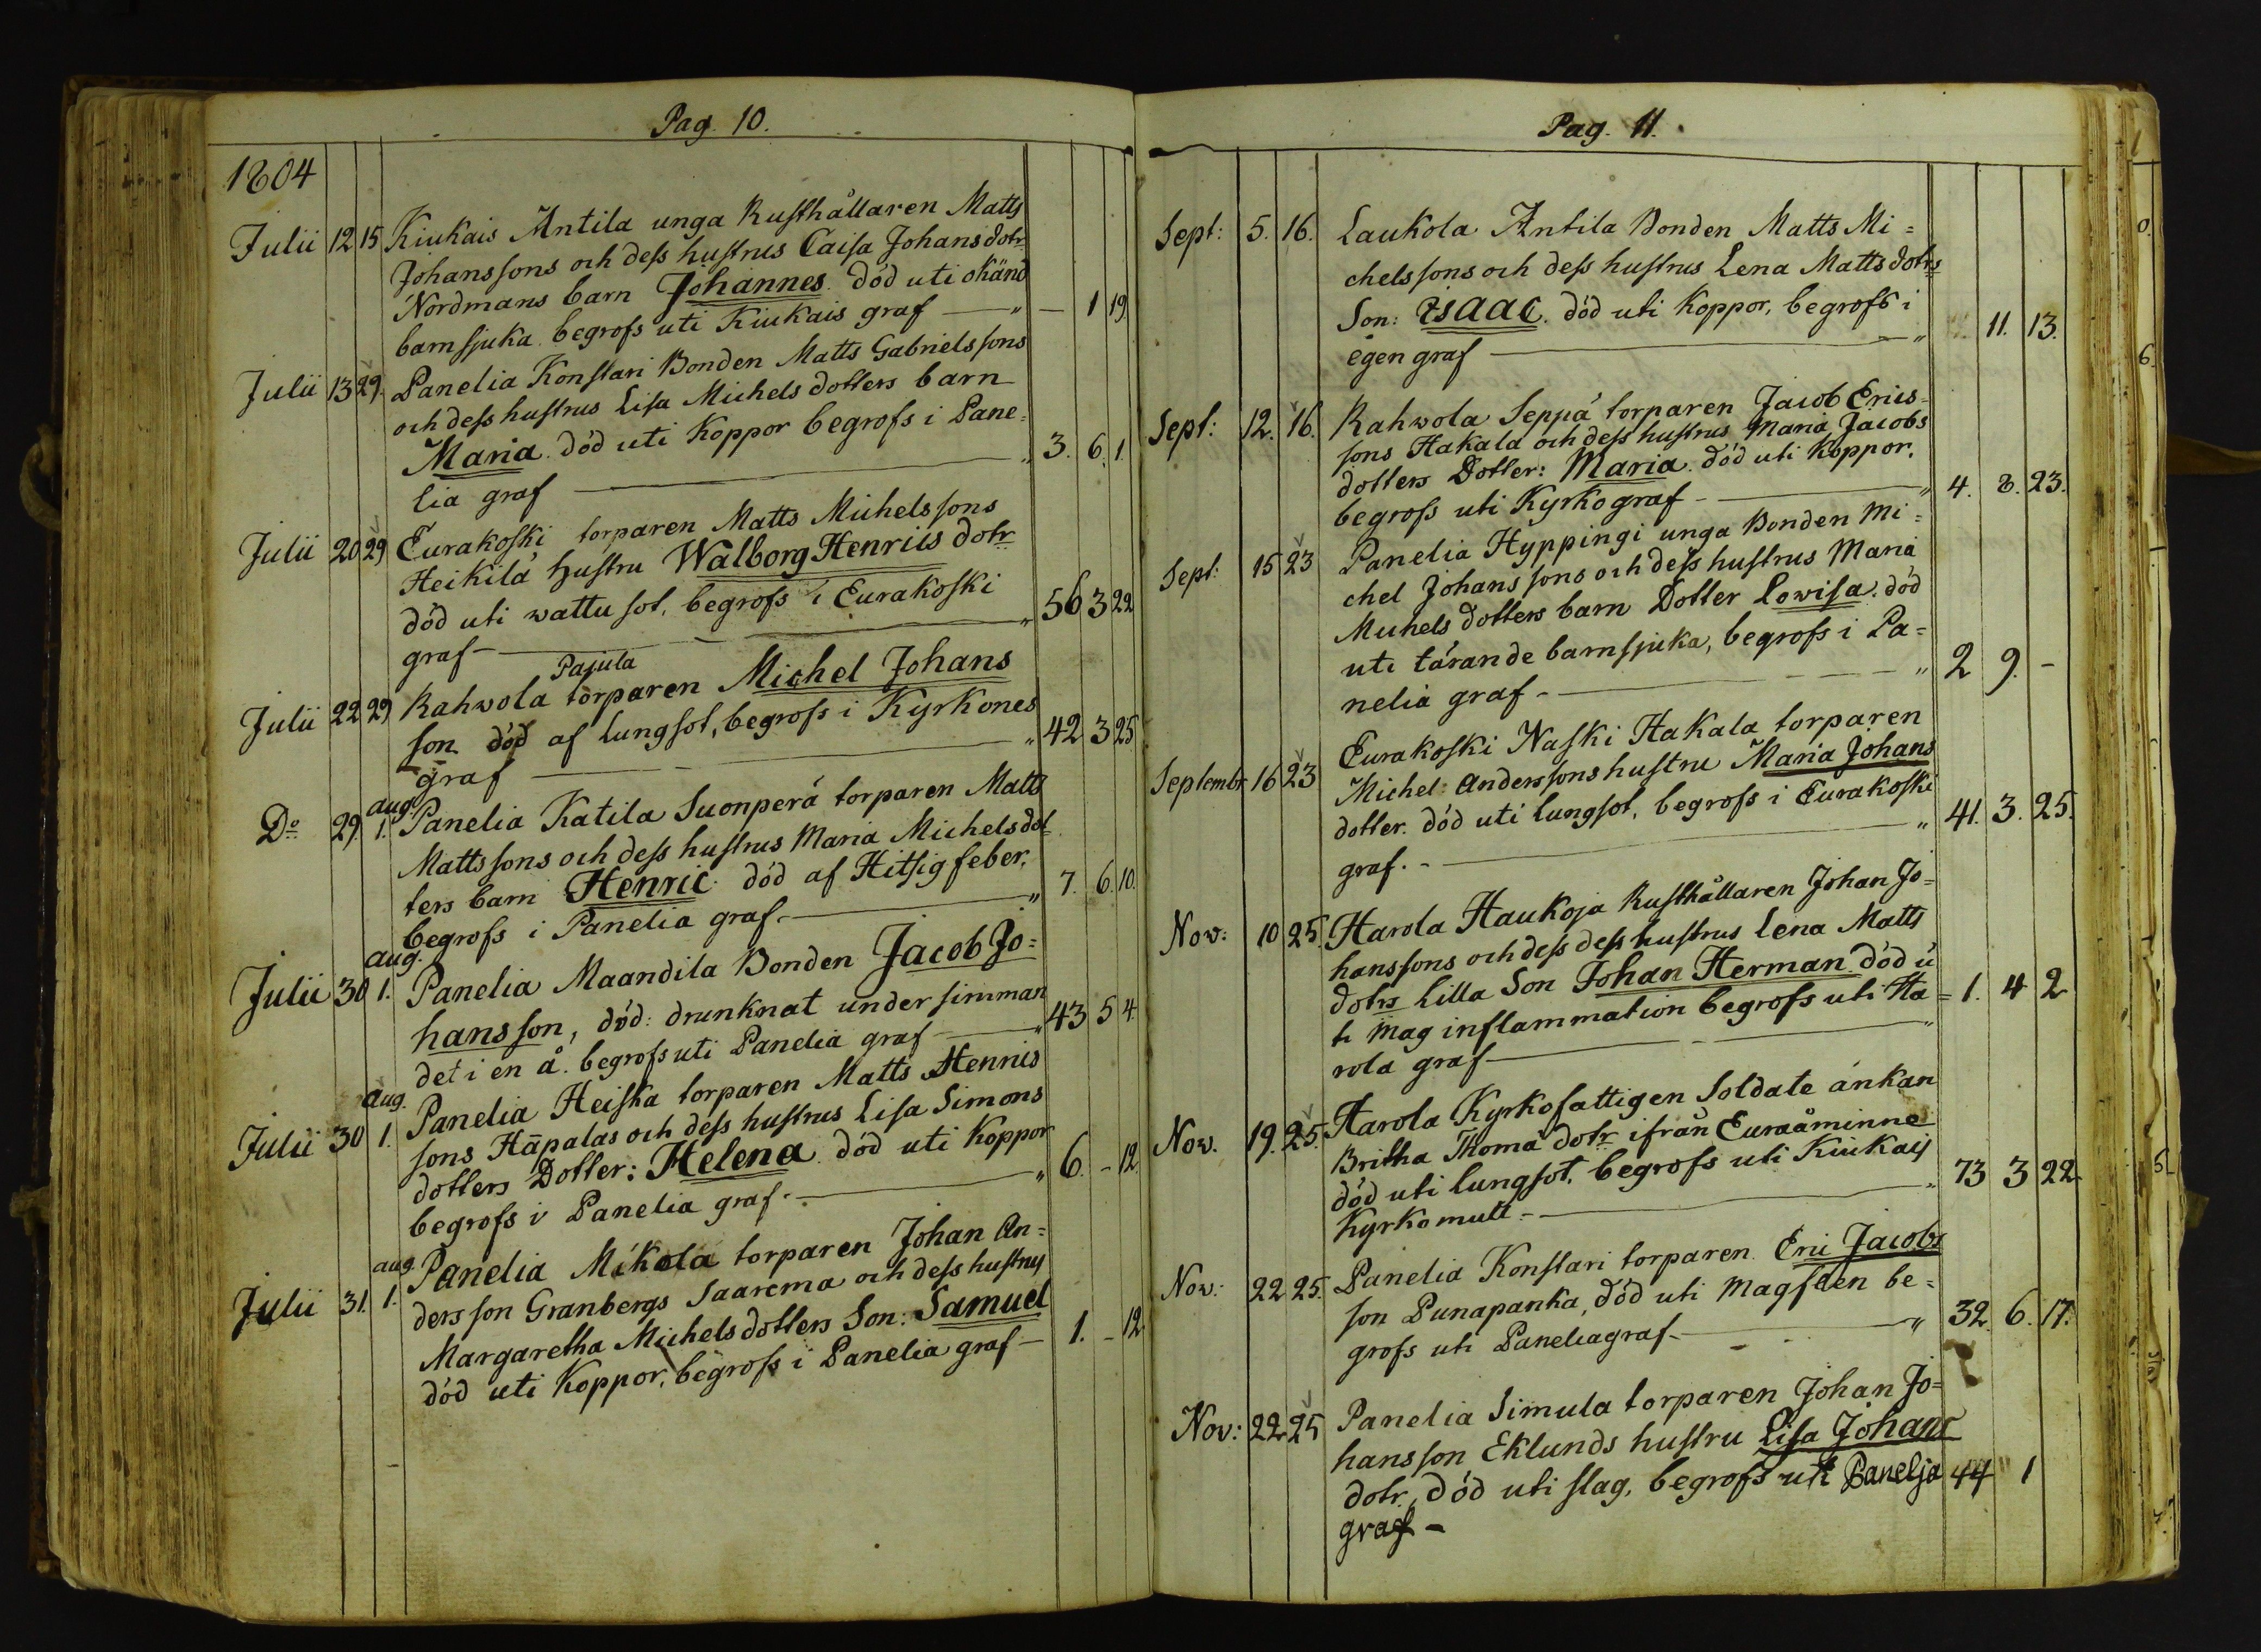 Pag. 10.
1804
Julii 12 15 Kiukais Antila unga Rusthållaren Matts
Johanssons och dess hustrus Caisa Johansdotr
Nordmans barn Johannes. död uti okänd
barnsjuka. begrofs uti Kiukais graf — " — 1 19
Julii 13 29. Panelia Konstari Bonden Matts Gabrielssons
och dess hustrus Lisa Michels dotters barn
Maria. död uti Koppor begrofs i Pane=
lia graf — " 3. 6. 1.
Julii 20 29 Eurakoski torparen Matts Michelssons
Heikilä hustru Walborg Henrics dotr
död uti wattusot, begrofs i Eurakoski
graf — " 56 3 22
Pajula
Julii 22 29 Rahwola torparen Michel Johans
son död af lungsot, begrofs i Kyrkones
graf — " 42 3 25
aug
Do 29. 1. Panelia Katila Suonperä torparen Matts
Mattssons och dess hustrus Maria Michelsdot
ters barn Henric. död af Hitsig feber,
begrofs i Panelia graf. — " 7. 6. 10.
aug.
Julii 30 1. Panelia Maandila Bonden Jacob Jo=
hansson, död: drunknat under simman
det i en å. begrofs uti Panelia graf — " 43 5 4.
aug.
Julii 30 1. Panelia Heiska torparen Matts Henrics
sons Häpalas och dess hustrus Lisa Simons
dotters Dotter: Helena. död uti Koppor
begrofs i Panelia graf. — " 6. - 12
aug.
Julii 31. 1. Panelia Mikola torparen Johan An=
dersson Granbergs Saarema och dess hustrus
Margaretha Michels dotters Son: Samuel
död uti Koppor, begrofs i Panelia graf — 1. - 12.
Pag. 11.
Sept: 5. 16. Laukola Antila Bonden Matts Mi=
chelssons och dess hustrus Lena Mattsdotrs
Son: Isaac. död uti Koppor, begrofs i
egen graf — " 11. 13.
Sept: 12. 16. Rahwola Seppä torparen Jacob Erics=
sons Hakala och dess hustrus Maria Jacobs
dotters Dotter: Maria. död uti Koppor,
begrofs uti Kyrko graf — " 4. 8. 23.
Sept: 15 23 Panelia Hyppingi unga Bonden Mi=
chel Johanssons och dess hustrus Maria
Michels dotters barn Dotter Lowisa. död
uti tärande barnsjuka, begrofs i Pa=
nelia graf — " 2 9. -
Septembr 16 23 Eurakoski Naski Hakala torparen
Michel: Anderssons hustru Maria Johans
dotter. död uti lungsot, begrofs i Eurakoski
graf. — " 41. 3. 25.
Nov: 10 25. Harola Haukoja Rusthållaren Johan Jo=
hanssons och dess dess hustrus Lena Matts
dotrs Lilla Son Johan Herman död u
ti Mag inflammation begrofs uti Ha=
rola graf — " 1. 4 2
Nov. 19. 25. Harola Kyrkofattigen Soldate änkan
Britha Thoma dotr ifrån Euraåminne
död uti lungsot, begrofs uti Kiukais
Kyrkomull. — " 73 3 22
Nov: 22 25. Panelia Konstari torparen Eric Jacobs
son Punapanka, död uti Magsteen be=
grofs uti Paneliagraf. — " 32. 6. 17.
Nov: 22 25 Panelia Simula torparen Johan Jo=
hansson Eklunds hustru Lisa Johans
dotr, död uti slag, begrofs uti Panelja 44 " 1
graf —